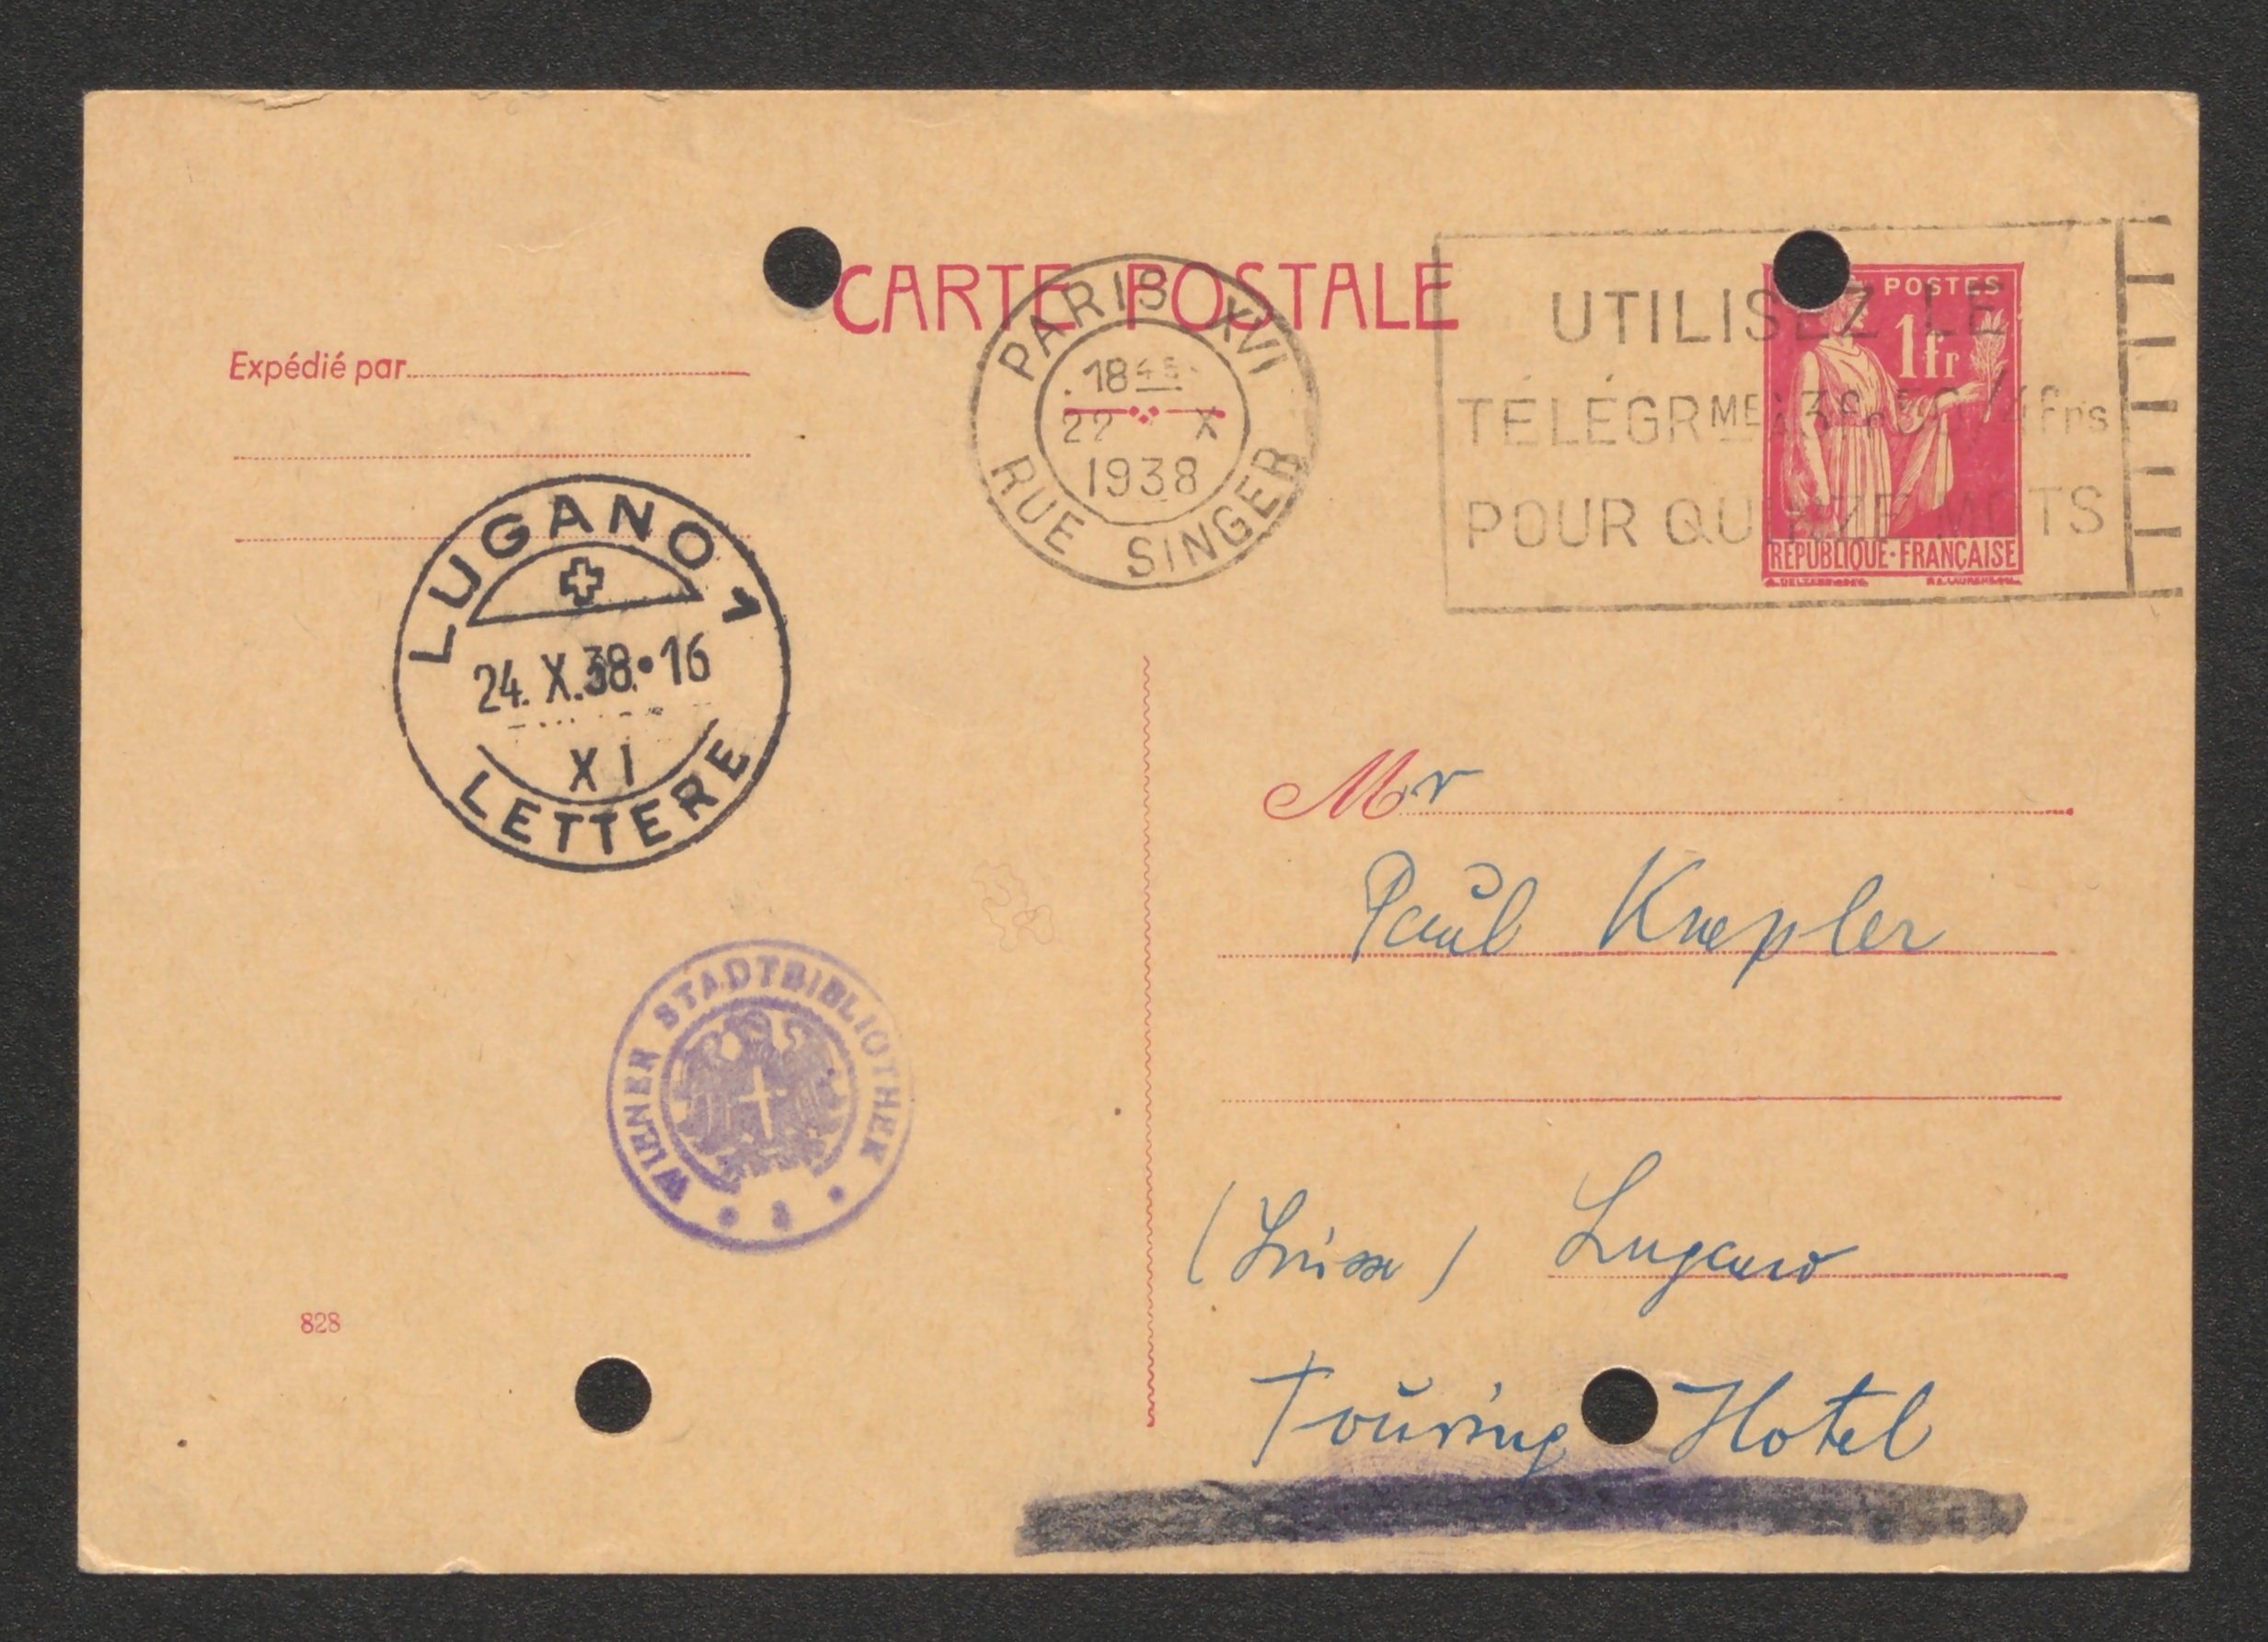 CARTE POSTALE
Expédié par
PARIS XVI
18 45
22 X
1938
RUE SINGER
UTILISEZ LE
POUR QUINZE MOTS
POSTES
1fr
REPUBLIQUE·FRANÇAISE
LUGANO 1
24. X.38•16
XI
LETTERE
Mr
Paul Knepler
WIENER STADTBIBLIOTHEK
(Suisse) Lugano
828
Touring Hotel